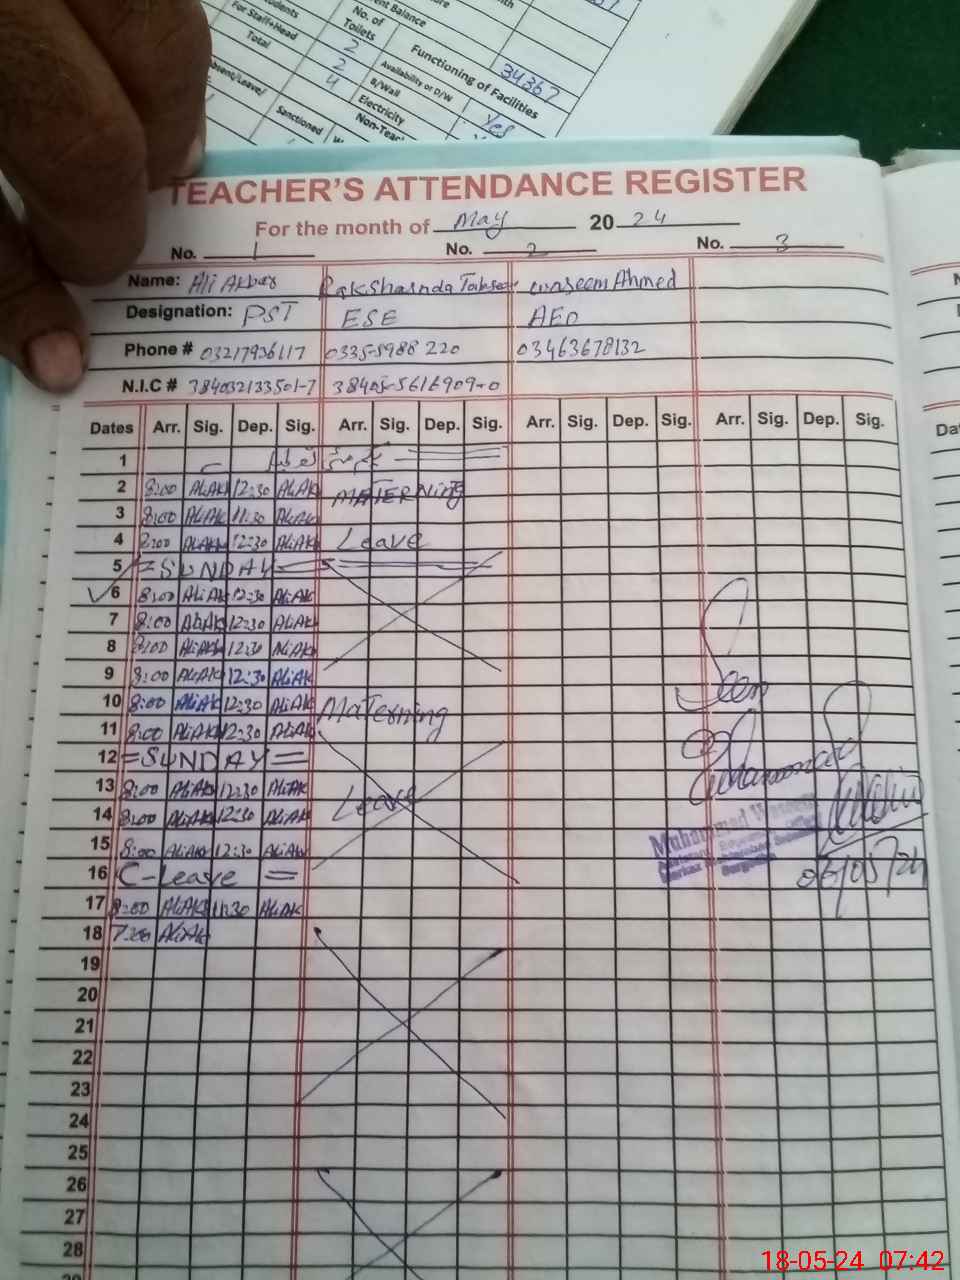 For Staff+Head
Total
No. of
Toilets
2
2
4
Functioning of Facilities
34367
Availability or D/W
B/Wall
Electricity
Yes
Sanctioned
TEACHER'S ATTENDANCE REGISTER
For the month of May 2024
No. 1 No. 2 No. 3
Name: Ali Akbar Rakshanda Waseem Ahmed
Designation: PST ESE AEO
Phone # 03217936117 0335-5988 220 03463678132
N.I.C # 384032133501-7 38405-5616909-0
Dates Arr. Sig. Dep. Sig. Arr. Sig. Dep. Sig. Arr. Sig. Dep. Sig. Arr. Sig. Dep. Sig.
1
2 8:00 AliAk 12:30 AliAk MATERNING
3 8:00 AliAk 11:30 AliAk
4 8:00 AliAk 12:30 AliAk Leave
5 = SUNDAY =
6 8:00 AliAk 12:30 AliAk
7 8:00 AliAk 12:30 AliAk
8 8:00 AliAk 12:30 AliAk
9 8:00 AliAk 12:30 AliAk
10 8:00 AliAk 12:30 AliAk Materning
11 8:00 AliAk 12:30 AliAk
12 = SUNDAY =
13 8:00 AliAk 12:30 AliAk
14 8:00 AliAk 12:30 AliAk Leave
15 8:00 AliAk 12:30 AliAk
16 C-Leave =
17 8:00 AliAk 11:30 AliAk
18 7:00 AliAk
19
20
21
22
23
24
25
26
27
28
Seen
Muhammad
Muhammad Waseem
06/05/24
18-05-24 07:42